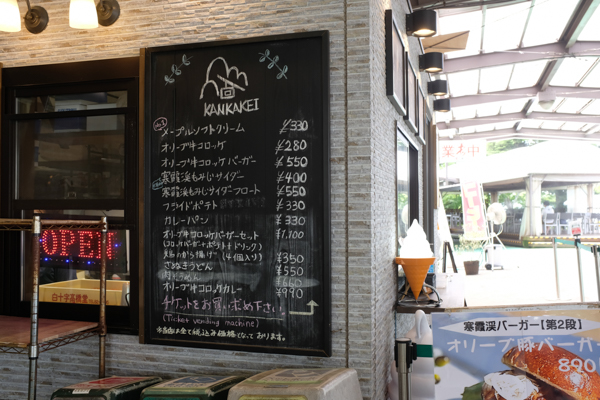 KANKAKEI
メープルソフトクリーム ¥330
オリーブ牛コロッケ ¥280
オリーブ牛コロッケバーガー ¥550
寒霞渓もみじサイダー ¥400
寒霞渓もみじサイダーフロート ¥550
フライドポテト ¥330
カレーパン ¥330
オリーブ牛コロッケバーガーセット ¥1,100
(コロッケバーガー+ポテト+ドリンク)
から揚げ (4個入り) ¥350
さぬきうどん ¥550
うどん ¥660
オリーブ牛コロッケカレー ¥990
チケットをお買い求め下さい。
(Ticket vending machine)
※金額は全て税込み価格となっております。
OPEN
寒霞渓バーガー【第2段】
オリーブ豚バーガ
890